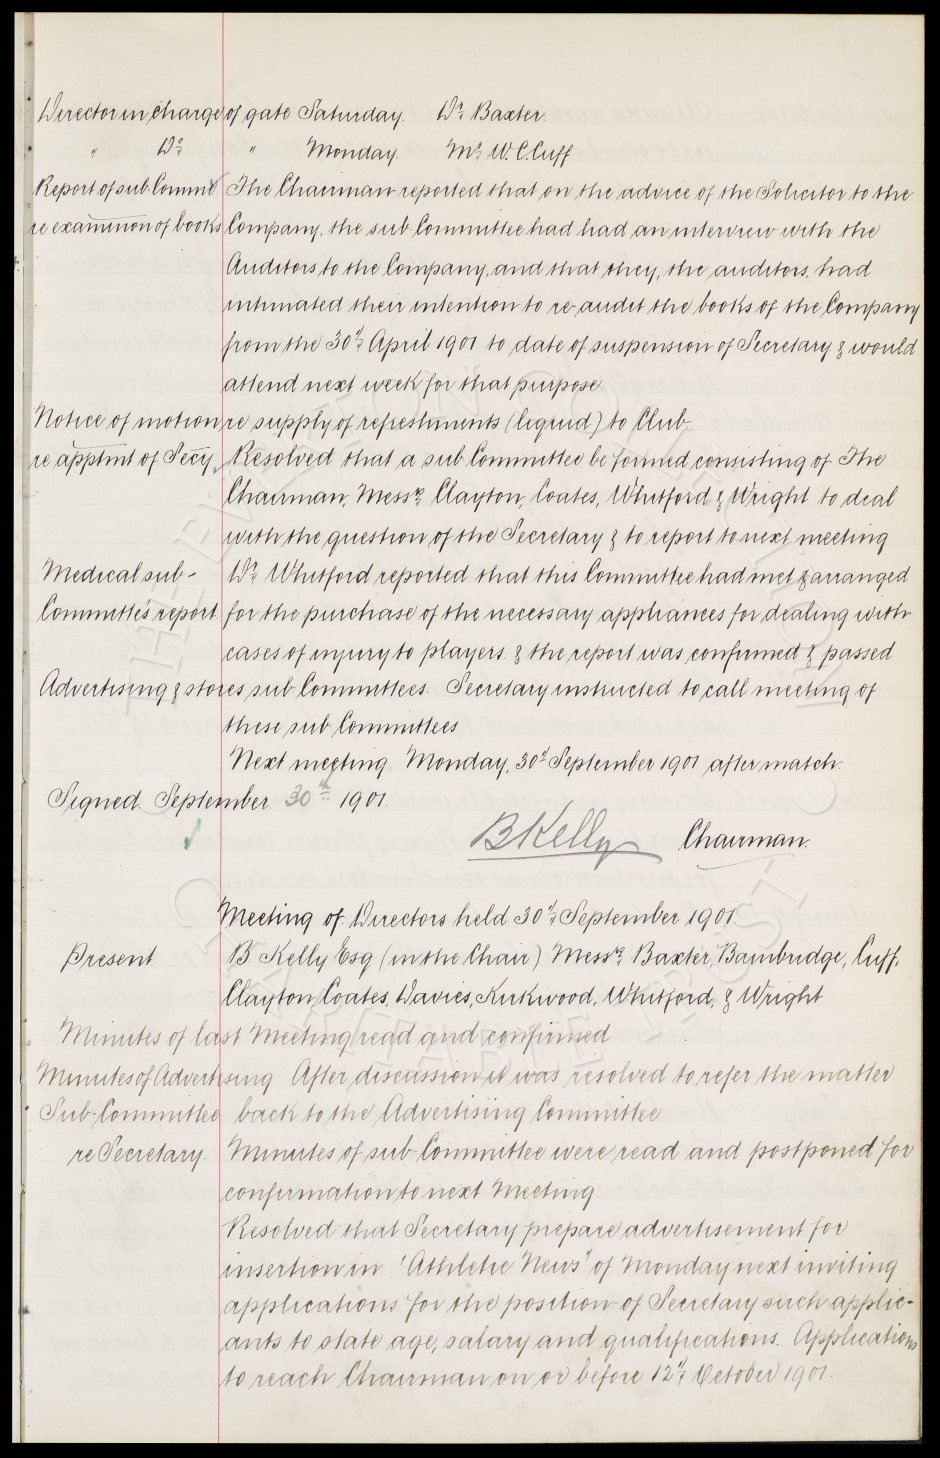 Director in charge of gate Saturday. Dr. Baxter.
" Do " Monday. Mr. W.C. Cuff
Report of sub Commee The Chairman reported that on the advice of the Solicitor to the
re examinon of books Company, the sub Committee had had an interview with the
Auditors to the Company, and that they, the auditors, had
intimated their intention to re-audit the books of the Company
from the 30th April 1901 to date of suspension of Secretary & would
attend next week for that purpose.
Notice of motion re supply of refreshments (liquid) to Club.
re apptmt of Secy. Resolved that a sub Committee be formed consisting of The
Chairman, Messrs. Clayton, Coates, Whitford & Wright to deal
with the question of the Secretary & to report to next meeting
Medical sub- Dr. Whitford reported that this Committee had met & arranged
Committee's report for the purchase of the necessary appliances for dealing with
cases of injury to players & the report was confirmed & passed
Advertising & stores sub Committees. Secretary instructed to call meeting of
these sub Committees
Next meeting Monday, 30th September 1901 after match.
Signed September 30th 1901.
B Kelly Chairman.
Meeting of Directors held 30th September 1901.
Present B. Kelly Esq (in the Chair) Messrs. Baxter, Bainbridge, Cuff,
Clayton, Coates, Davies, Kirkwood, Whitford, & Wright
Minutes of last Meeting read and confirmed
Minutes of Advertising After discussion it was resolved to refer the matter
Sub-Committee back to the Advertising Committee
re Secretary. Minutes of sub-Committee were read and postponed for
confirmation to next Meeting
Resolved that Secretary prepare advertisement for
insertion in "Athletic News" of Monday next inviting
applications for the position of Secretary such applic-
ants to state age, salary and qualifications. Applications
to reach Chairman on or before 12th October 1901.